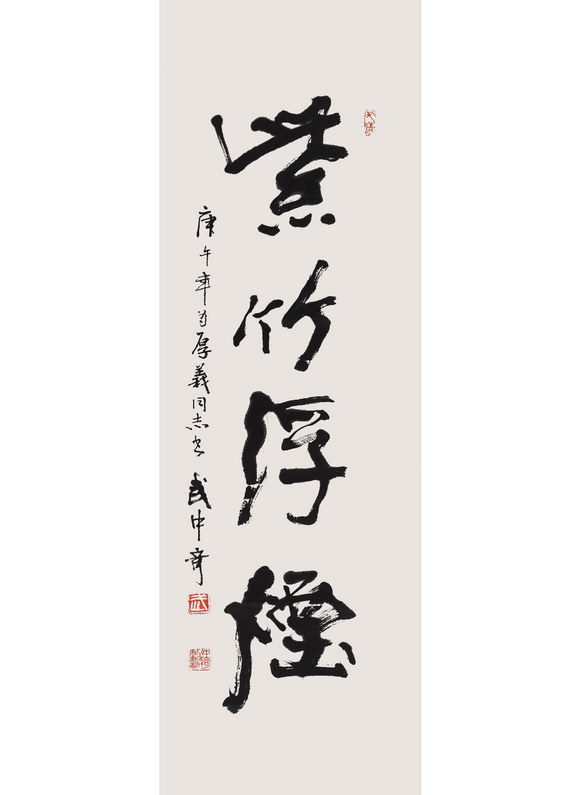 紫竹浮煙
庚午年为厚義同志书 武中奇
武